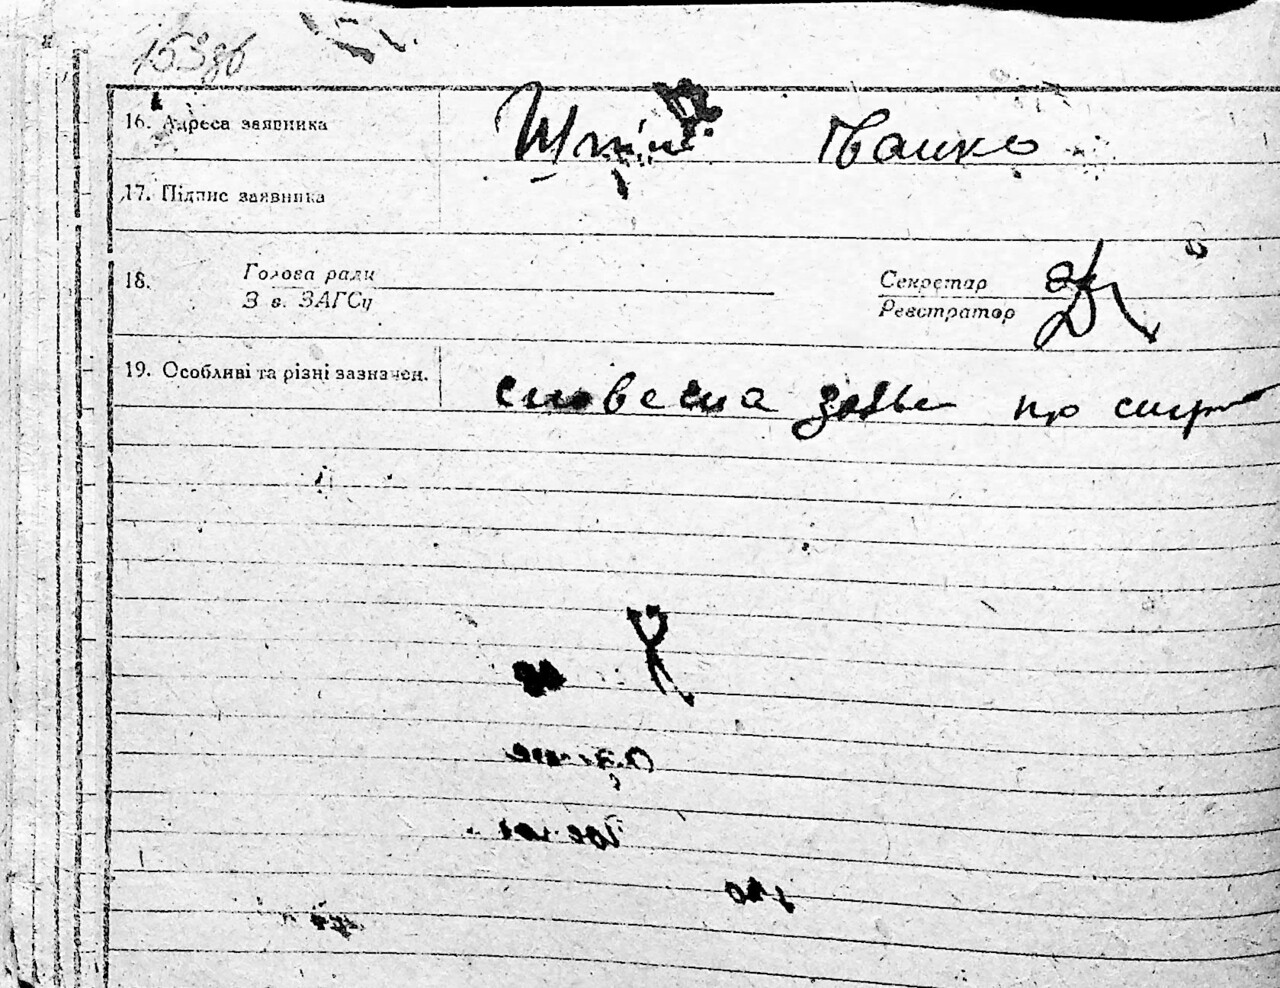 153 зв
16. Адреса заявника
17. Підпис заявника
18. Голова ради Секретар
З в. ЗАГСу Реєстратор
19. Особливі та різні зазначен. словесна заява про смерть